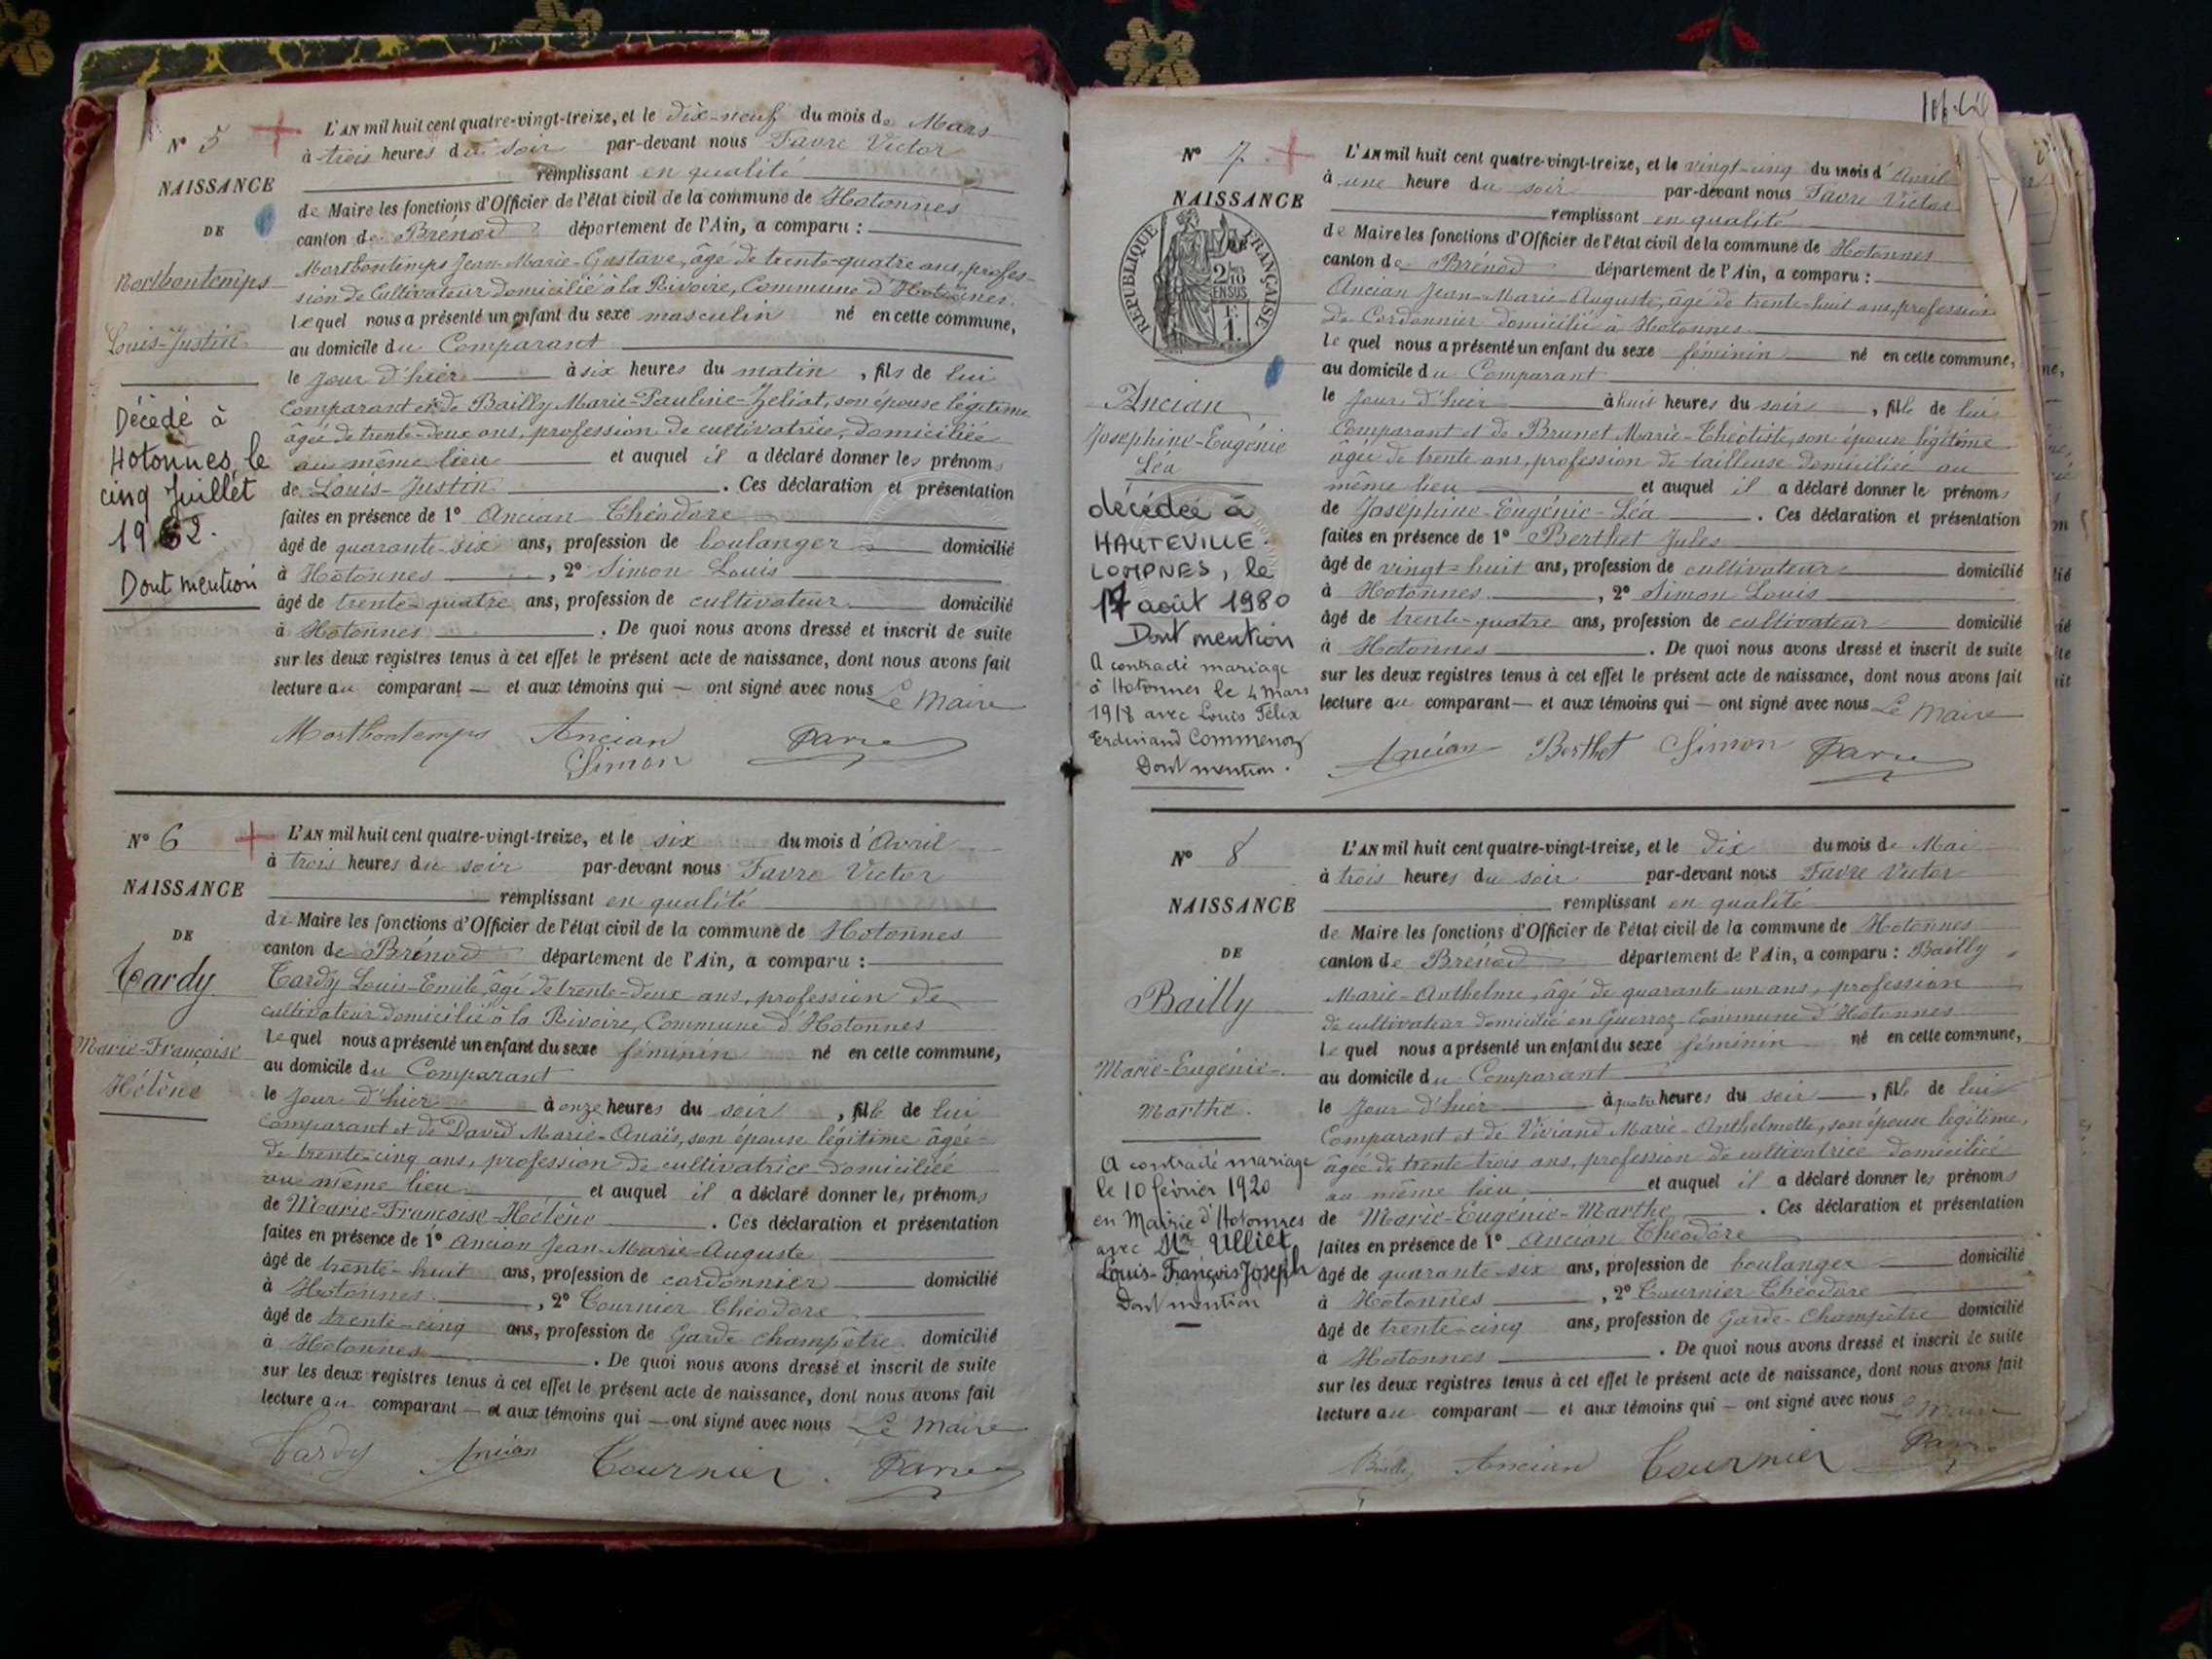 N° 5
NAISSANCE
DE
Mortbontemps
Louis-Justin
Décédé à
Hotonnes, le
cinq Juillet
1962.
Dont mention
L'AN mil huit cent quatre-vingt-treize, et le dix-neuf du mois de Mars
à trois heures du soir par-devant nous Favre Victor
remplissant en qualité
de Maire les fonctions d'Officier de l'état civil de la commune de Hotonnes
canton de Brénod département de l'Ain, a comparu :
Mortbontemps Jean-Marie-Gustave, âgé de trente-quatre ans, profes-
sion de Cultivateur domicilié à la Rivoire, Commune d'Hotonnes.
lequel nous a présenté un enfant du sexe masculin né en cette commune,
au domicile du Comparant
le jour d'hier à six heures du matin, fils de lui
Comparant et de Bailly Marie-Pauline-Zeliat, son épouse légitime
âgée de trente-deux ans, profession de cultivatrice, domiciliée
au même lieu et auquel il a déclaré donner les prénoms
de Louis-Justin. Ces déclaration et présentation
faites en présence de 1° Ancian Théodore
âgé de quarante-six ans, profession de boulanger domicilié
à Hotonnes, 2° Simon Louis
âgé de trente-quatre ans, profession de cultivateur domicilié
à Hotonnes. De quoi nous avons dressé et inscrit de suite
sur les deux registres tenus à cet effet le présent acte de naissance, dont nous avons fait
lecture au comparant — et aux témoins qui — ont signé avec nous Le Maire
Mortbontemps Ancian Favre
Simon
N° 6
NAISSANCE
DE
Tardy
Marie-Françoise
Hélène
L'AN mil huit cent quatre-vingt-treize, et le six du mois d'Avril
à trois heures du soir par-devant nous Favre Victor
remplissant en qualité
de Maire les fonctions d'Officier de l'état civil de la commune de Hotonnes
canton de Brénod département de l'Ain, a comparu :
Tardy Louis-Emile, âgé de trente-deux ans, profession de
cultivateur domicilié à la Rivoire, Commune d'Hotonnes
lequel nous a présenté un enfant du sexe féminin né en cette commune,
au domicile du Comparant
le jour d'hier à onze heures du soir, fille de lui
Comparant et de David Marie-Anaïs, son épouse légitime âgée
de trente-cinq ans, profession de cultivatrice domiciliée
au même lieu et auquel il a déclaré donner les prénoms
de Marie-Françoise-Hélène. Ces déclaration et présentation
faites en présence de 1° Ancian Jean-Marie-Auguste
âgé de trente-huit ans, profession de cordonnier domicilié
à Hotonnes, 2° Tournier Théodore
âgé de trente-cinq ans, profession de Garde champêtre domicilié
à Hotonnes. De quoi nous avons dressé et inscrit de suite
sur les deux registres tenus à cet effet le présent acte de naissance, dont nous avons fait
lecture au comparant — et aux témoins qui — ont signé avec nous Le Maire
Tardy Ancian Tournier. Favre
N° 7
NAISSANCE
RÉPUBLIQUE FRANÇAISE
2/10
EN SUS
1 F.
Ancian
Joséphine-Eugénie
Léa
décédée à
HAUTEVILLE-
LOMPNES, le
17 août 1980
Dont mention
A contracté mariage
à Hotonnes le 4 mars
1918 avec Louis Félix
Ferdinand Commenoz
Dont mention.
L'AN mil huit cent quatre-vingt-treize, et le vingt-cinq du mois d'Avril
à une heure du soir par-devant nous Favre Victor
remplissant en qualité
de Maire les fonctions d'Officier de l'état civil de la commune de Hotonnes
canton de Brénod département de l'Ain, a comparu :
Ancian Jean-Marie-Auguste, âgé de trente-huit ans, profession
de Cordonnier domicilié à Hotonnes
lequel nous a présenté un enfant du sexe féminin né en cette commune,
au domicile du Comparant
le jour d'hier à huit heures du soir, fille de lui
Comparant et de Brunet Marie-Théotiste, son épouse légitime
âgée de trente ans, profession de tailleuse domiciliée au
même lieu et auquel il a déclaré donner le prénoms
de Joséphine-Eugénie-Léa. Ces déclaration et présentation
faites en présence de 1° Berthet Jules
âgé de vingt-huit ans, profession de cultivateur domicilié
à Hotonnes, 2° Simon Louis
âgé de trente-quatre ans, profession de cultivateur domicilié
à Hotonnes. De quoi nous avons dressé et inscrit de suite
sur les deux registres tenus à cet effet le présent acte de naissance, dont nous avons fait
lecture au comparant — et aux témoins qui — ont signé avec nous Le Maire
Ancian Berthet Simon Favre
N° 8
NAISSANCE
DE
Bailly
Marie-Eugénie-
Marthe.
A contracté mariage
le 10 février 1920
en Mairie d'Hotonnes
avec Mr Ulliet
Louis-François Joseph
Dont mention
L'AN mil huit cent quatre-vingt-treize, et le dix du mois de Mai
à trois heures du soir par-devant nous Favre Victor
remplissant en qualité
de Maire les fonctions d'Officier de l'état civil de la commune de Hotonnes
canton de Brénod département de l'Ain, a comparu : Bailly
Marie-Anthelme, âgé de quarante un ans, profession
de cultivateur domicilié en Guerroz Commune d'Hotonnes.
lequel nous a présenté un enfant du sexe féminin né en cette commune,
au domicile du Comparant
le jour d'hier à quatre heures du soir, fille de lui
Comparant et de Viviand Marie-Anthelmette, son épouse légitime,
âgée de trente-trois ans, profession de cultivatrice domiciliée
au même lieu et auquel il a déclaré donner les prénoms
de Marie-Eugénie-Marthe. Ces déclaration et présentation
faites en présence de 1° Ancian Théodore
âgé de quarante-six ans, profession de boulanger domicilié
à Hotonnes, 2° Tournier Théodore
âgé de trente-cinq ans, profession de Garde-Champêtre domicilié
à Hotonnes. De quoi nous avons dressé et inscrit de suite
sur les deux registres tenus à cet effet le présent acte de naissance, dont nous avons fait
lecture au comparant — et aux témoins qui — ont signé avec nous Le Maire
Bailly Ancian Tournier Favre